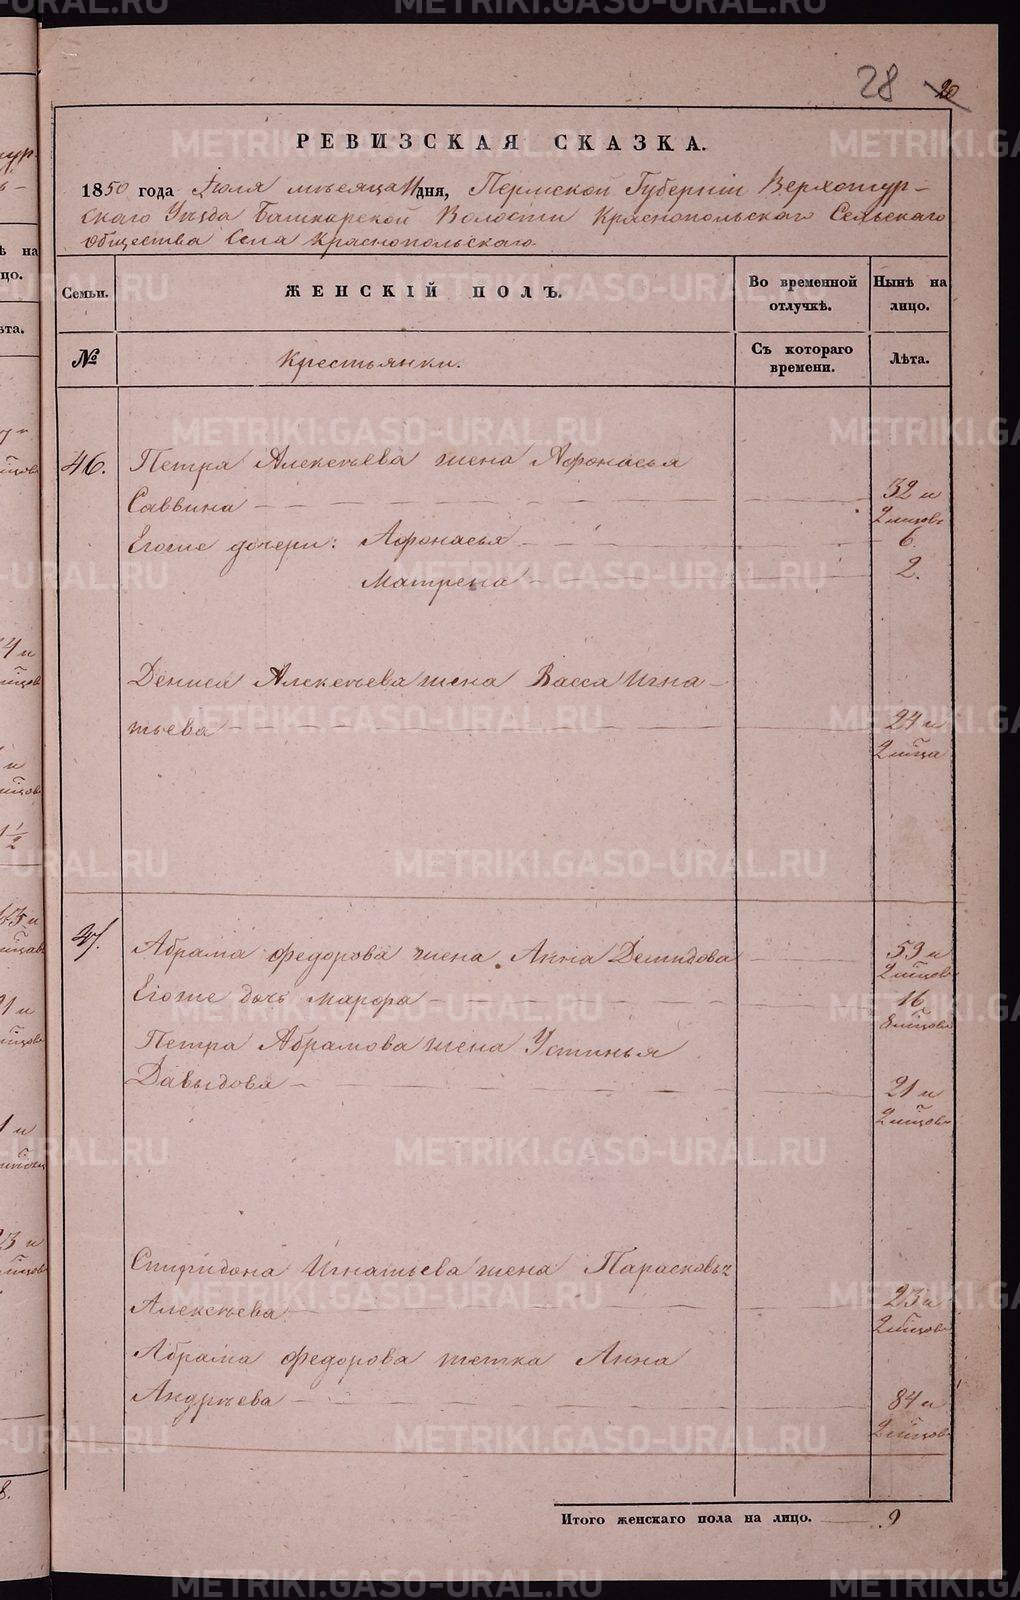 28 20
РЕВИЗСКАЯ СКАЗКА.
1850 года Іюля мѣсяца 11 дня, Пермской Губерніи Верхотур-
скаго Уѣзда Башкарской Волости Краснопольскаго Сельскаго
общества Села Краснопольскаго.
Семьи. ЖЕНСКІЙ ПОЛЪ. Во временной отлучкѣ. Нынѣ на лицо.
№ Крестьянки. Съ котораго времени. Лѣта.
46. Петра Алексѣева жена Афонасья
Саввина 32 и
2 мѣсцовъ
Егоже дочери: Афонасья 6.
Матрена 2.
Дениса Алексѣева жена Васса Игна-
тьева 24 и
2 мѣсца
47. Абрама Федорова жена Анна Демидова 59 и
2 мѣсцовъ
Егоже дочь Марфа 16
8 мѣсцовъ
Петра Абрамова жена Устинья
Давыдова 21 и
2 мѣсцовъ
Спиридона Игнатьева жена Парасковья
Алексѣева 23 и
2 мѣсцовъ
Абрама Федорова тетка Анна
Андрѣева 84 и
2 мѣсцовъ
Итого женскаго пола на лицо. 9
METRIKI.GASO-URAL.RU